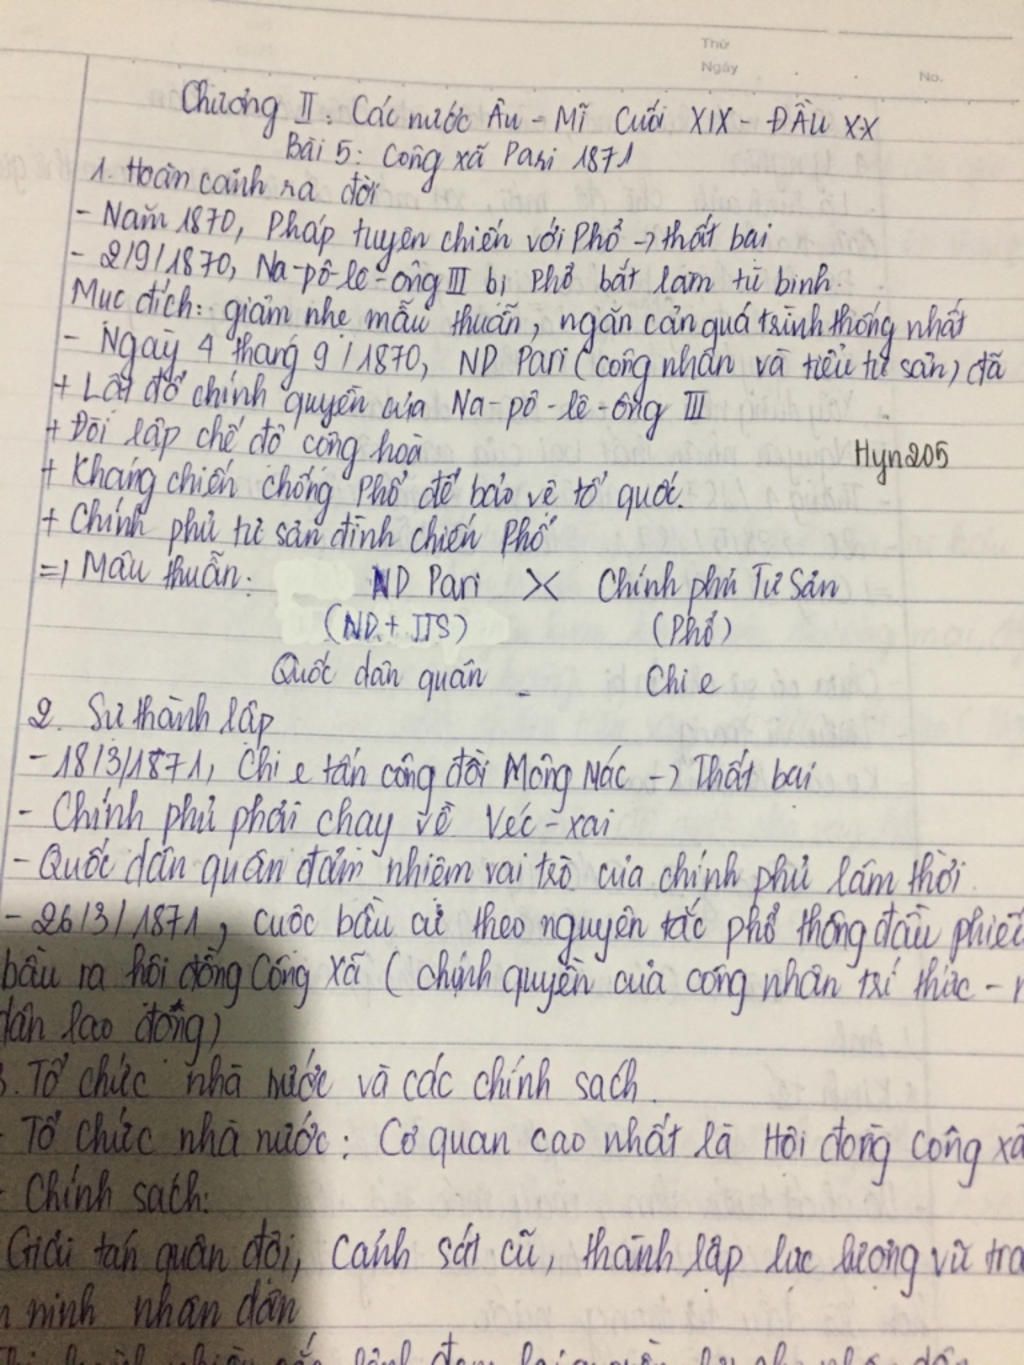 Thứ
Ngày
No.
Chương II: Các nước Âu - Mĩ cuối XIX - ĐẦU XX
Bài 5: Công xã Pari 1871
1. Hoàn cảnh ra đời
- Năm 1870, Pháp tuyên chiến với Phổ -> thất bại
- 2/9/1870, Na-pô-lê-ông III bị Phổ bắt làm tù binh.
Mục đích: giảm nhẹ mẫu thuẫn, ngăn cản quá trình thống nhất
- Ngày 4 tháng 9/1870, ND Pari (công nhân và tiểu tư sản) đã
+ Lật đổ chính quyền của Na-pô-lê-ông III
+ Đòi lập chế độ cộng hoà
Hyn205
+ Kháng chiến chống Phổ để bảo vệ tổ quốc.
+ Chính phủ tư sản đình chiến Phổ
=> Mâu thuẫn: ND Pari X Chính phủ Tư Sản
(ND + TTS) (Phổ)
Quốc dân quân - Chi e
2. Sự thành lập
- 18/3/1871, Chi e tấn công đồi Mông Mác -> Thất bại
- Chính phủ phải chạy về Véc-xai
- Quốc dân quân đảm nhiệm vai trò của chính phủ lâm thời.
- 26/3/1871, cuộc bầu cử theo nguyên tắc phổ thông đầu phiếu
bầu ra hội đồng Công xã (chính quyền của công nhân trí thức -
dân lao động)
3. Tổ chức nhà nước và các chính sách.
- Tổ chức nhà nước: Cơ quan cao nhất là Hội đồng công xã
- Chính sách:
Giải tán quân đội, cảnh sát cũ, thành lập lực lượng vũ tra
ninh nhân dân